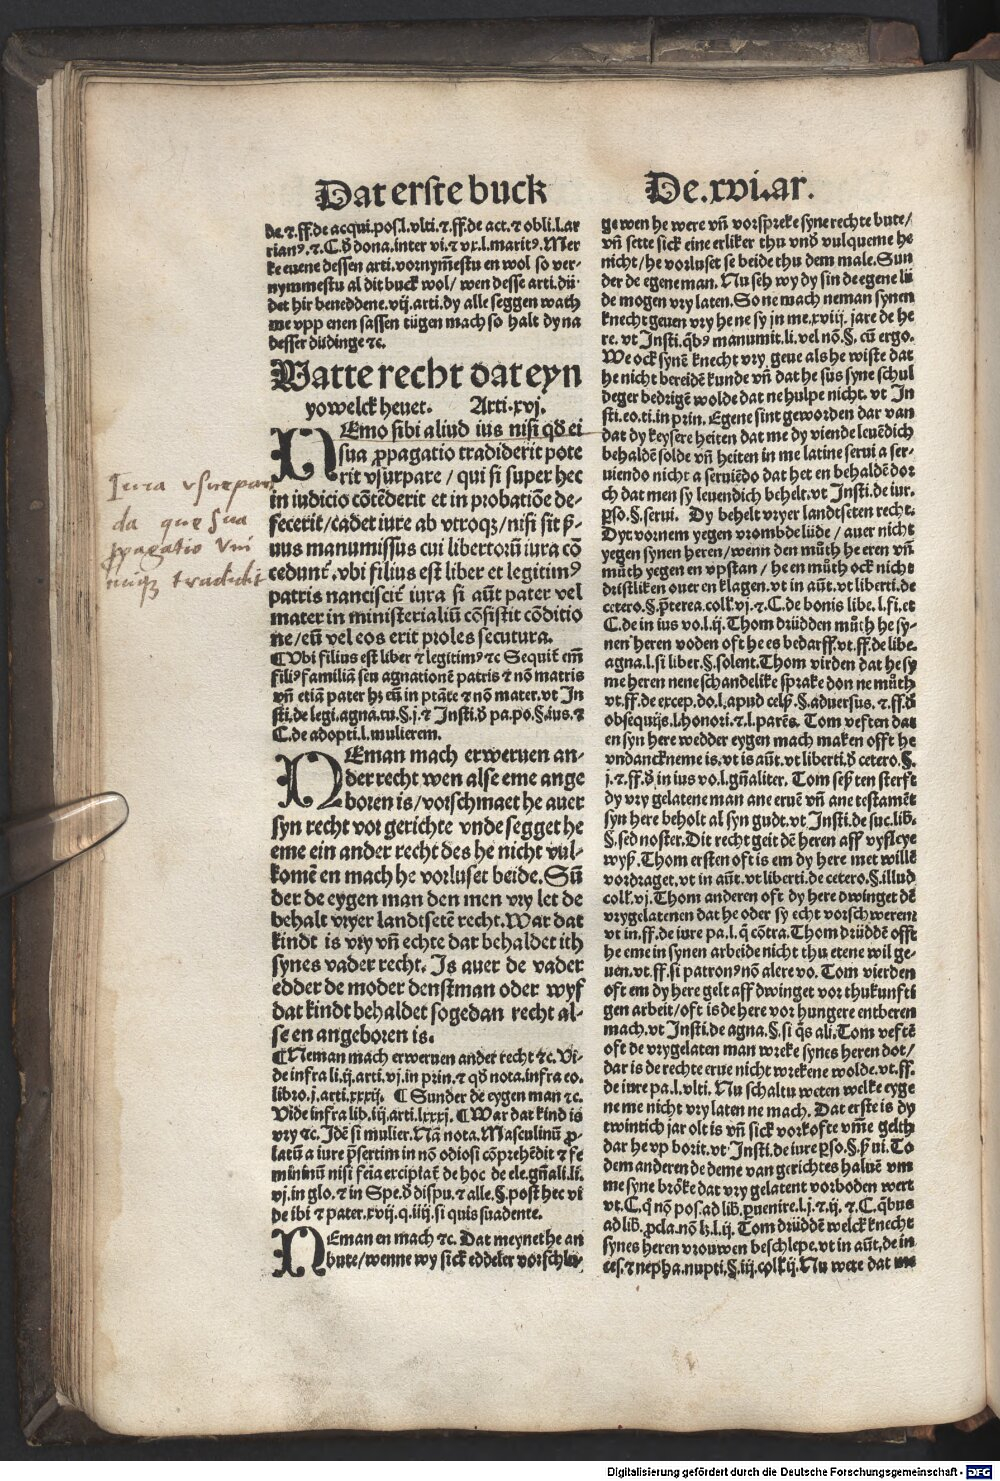 Dat erste buck
De.xvi.ar.
de.⁊.ff.de acqui.pos.l.vlti.⁊.ff.de act.⁊ obli.l.ar
rianꝰ.⁊.C.ð dona.inter vi.⁊ vx.l.maritꝰ.Mer
ke euene dessen arti.vornym̄estu en wol so ver-
nymmestu al dit buck wol/ wen desse arti.dü-
det hir beneddene.vij.arti.dy alle seggen wach
me vpp enen sassen tügen mach so halt dy na
desser düdinge ⁊c.
Watte recht dat eyn
yowelck heuet. Arti.xvj.
NEmo sibi aliud ius nisi qð ei
sua ꝓpagatio tradiderit pote
rit vsurpare / qui si super hec
in iudicio cōtēderit et in probatiōe de-
fecerit/cadet iure ab vtroqꝫ/nisi sit p̄-
uus manumissus cui libertorū iura cō
cedunt᷑.vbi filius est liber et legitimꝰ
patris nanciscit᷑ iura si aūt pater vel
mater in ministerialiū cōsistit cōditio
ne/eū vel eos erit proles secutura.
¶Vbi filius est liber ⁊ legitimꝰ ⁊c Sequit᷑ em̄
filiꝰ familiā seu agnationē patris ⁊ nō matris
vn̄ etiā pater hꝫ eū in ptāte ⁊ nō mater.vt In
sti.de legi.agna.tu.§.j.⁊ Insti.ð pa.po.§.ius.⁊
C.de adopti.l.mulierem.
NEman mach erweruen an-
der recht wen alse eme ange
boren is/vorschmaet he auer
syn recht vor gerichte vnde segget he
eme ein ander recht des he nicht vul-
komē en mach he vorluset beide.Sū
der de eygen man den men vry let de
behalt vryer landtsetē recht.War dat
kindt is vry vn̄ echte dar behaldet ith
synes vader recht. Is auer de vader
edder de moder denstman oder wyf
dat kindt behaldet sogedan recht al-
se en angeboren is.
¶Neman mach erweruen ander recht ⁊c. Vi-
de infra li.ij.arti.vj.in prin.⁊ qð nota.infra eo.
libro.j.arti.xxxij. ¶ Sunder de eygen man ⁊c.
Vide infra lib.iij.arti.lxxxj. ¶War dat kind is
vry ⁊c. Idē si mulier. Nā nota. Masculinū ꝓ-
latū a iure p̄sertim in nō odiosi cōprehēdit ⁊ fe
mininū nisi feīa excipiat᷑ de hoc de ele.gn̄ali.li.
vj.in glo.⁊ in Spe.ð dispu.⁊ alle.§.post hec vi
de ibi ⁊ pater.xvij.q.iiij.si quis suadente.
NEman en mach ⁊c. Dat meynet he an
bute/wenne wy sick eddeler vorschlu-
gewen he were vn̄ vorspreke syne rechte bute/
vn̄ sette sick eine erliker thu vnð vulqueme he
nicht/he vorluset se beide thu dem male. Sun
der de egene man. Nu seh wy dy sin de egene lü
de mogen vry laten. So ne mach neman synen
knecht geuen vry he ne sy jn me.xviij. jare de he
re. vt Insti.q̄bꝰ manumit.li.vel nō.§. cū ergo.
We ock synē knecht vry geue als he wiste dat
he nicht bereidē kunde vn̄ dat he sus syne schul
deger bedrigē wolde dat ne hulpe nicht. vt In
sti.eo.ti.in prin. Egene sint geworden dar van
dat dy keysere heiten dat me dy viende leuēdich
behaldē solde vn̄ heiten in me latine serui a ser-
uiendo nicht a seruiēdo dat het en behaldē dor
ch dat men sy leuendich behelt.vt Insti.de iur.
ꝑso.§.serui. Dy behelt vryer landtseten recht.
Dyt vornem yegen vrombdelüde / auer nicht
yegen synen heren/wenn den mu̇th he eren vn̄
mu̇th yegen en vpstan / he en mu̇th ock nicht
dristliken ouer en klagen.vt in aūt.vt liberti.de
cetero.§.p̄terea.coll.vj.⁊.C.de bonis libe.l.fi.et
C.de in ius vo.l.ij. Thom drüdden mu̇th he sy-
nen heren voden oft he es bedarff.vt.ff.de libe.
agna.l.si liber.§.solent. Thom virden dat he sy
me heren nene schandelike sprake don ne mu̇th
vt.ff.de excep.do.l.apud celsꝰ.§.aduersus.⁊.ff.ð
obsequijs.l.honori.⁊.l.parēs. Tom veften dat
en syn here wedder eygen mach maken offt he
vndanckneme is.vt is aūt.vt liberti.ð cetero.§.
j.⁊.ff.ð in ius vo.l.gn̄aliter. Tom seß ten sterft
dy vry gelatene man ane eruē vn̄ ane testamēt
syn here beholt al syn gudt.vt Insti.de suc.lib.
§.sed noster. Dit recht geit dē heren aff vyfleye
wyß. Thom ersten oft is em dy here met willē
vordraget.vt in aūt.vt liberti.de cetero.§.illud
coll.vj. Thom anderen oft dy here dwinget dē
vrygelatenen dat he oder sy echt vorschweren
vt in.ff.de iure pa.l.q̄ cōtra. Thom drüddē offt
he eme in synen arbeide nicht thu etene wil ge-
uen.vt.ff.si patronꝰ nō alere vo. Tom vierden
oft em dy here gelt aff dwinget vor thukunfti
gen arbeit/oft is de here vor hungere entberen
mach.vt Insti.de agna.§.si q̄s ali. Tom veftē
oft de vrygelaten man wreke synes heren dot/
dar is de rechte erue nicht wrekene wolde.vt.ff.
de iure pa.l.vlti. Nu schaltu weten welke eyge
ne me nicht vry laten ne mach. Dat erste is dy
twintich jar olt is vn̄ sick vorkofte vm̄e gelth
dar he vp borit.vt Insti.de iure ꝑso.§.ß ui. To
dem anderen de deme van gerichtes haluē vm
me syne brōke dat vry gelatent vorboden wert
vt.C.q̄ nō pos.ad lib.ꝑuenire.l.j.⁊ ij. ⁊.C.q̄bus
ad lib.ꝓcla.nō lꝫ.l.ij. Tom drüddē welck knecht
synes heren vrouwen beschlepe.vt in aūt.de in
ces.⁊ nepha.nupti.§.iij.coll.ij. Nu were dat me
Iura vsurpan
da que sua
ꝓpagatio vni
cuiqꝫ tradidit
Digitalisierung gefördert durch die Deutsche Forschungsgemeinschaft - DFG